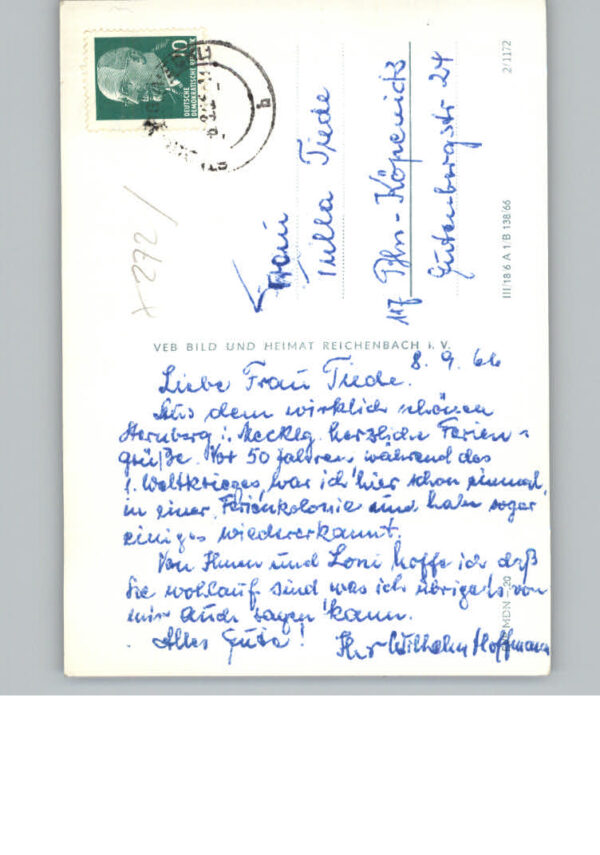 10
DEUTSCHE
DEMOKRATISCHE REPUBLIK
b
x 272/
Frau
Tulla Tiede
117 Bln-Köpenick
Gutenbergstr 24
2/1172
III/18 6 A 1/B 138/66
VEB BILD UND HEIMAT REICHENBACH i. V.
8. 9. 66
Liebe Frau Tiede.
Aus dem wirklich schönen
Sternberg i. Mecklg. herzliche Ferien-
grüße. Vor 50 Jahren während des
1. Weltkrieges, war ich hier schon einmal,
in einer Ferienkolonie und habe sogar
einiges wiedererkannt.
Von Ihnen und Loni hoffe ich daß
Sie wohlauf sind was ich übrigens von
mir auch sagen kann.
Alles Gute! Ihr Wilhelm Hoffmann
MDN -20